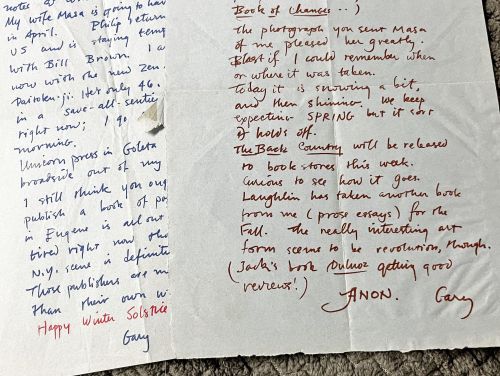 notes at
My wife Masa is going to hav
in April. Philip return
US and is staying temp
with Bill Brown. I a
now with the new Zen.
Daitoku-ji. Her only 46.
in a save-all-sentie
right now; I go
morning.
Unicorn press in Goleta
broadside out of my
I still think you oug
publish a book of po
in Eugene is all out
tired right now tho
N.Y. scene is definite
Those publishers are m
than their own w
Happy Winter Solstice
Gary
Book of Changes..)
The photograph you sent Masa
of me pleased her greatly.
if I could remember when
or where it was taken.
Today it is snowing a bit,
and then shining. We keep
expecting SPRING but it sort
of holds off.
The Back Country will be released
to book stores this week.
Curious to see how it goes.
Laughlin has taken another book
from me (prose essays) for the
Fall. The really interesting art
form seems to be revolution, though.
(Jack's book Duluoz getting good
reviews!)
ANON. Gary